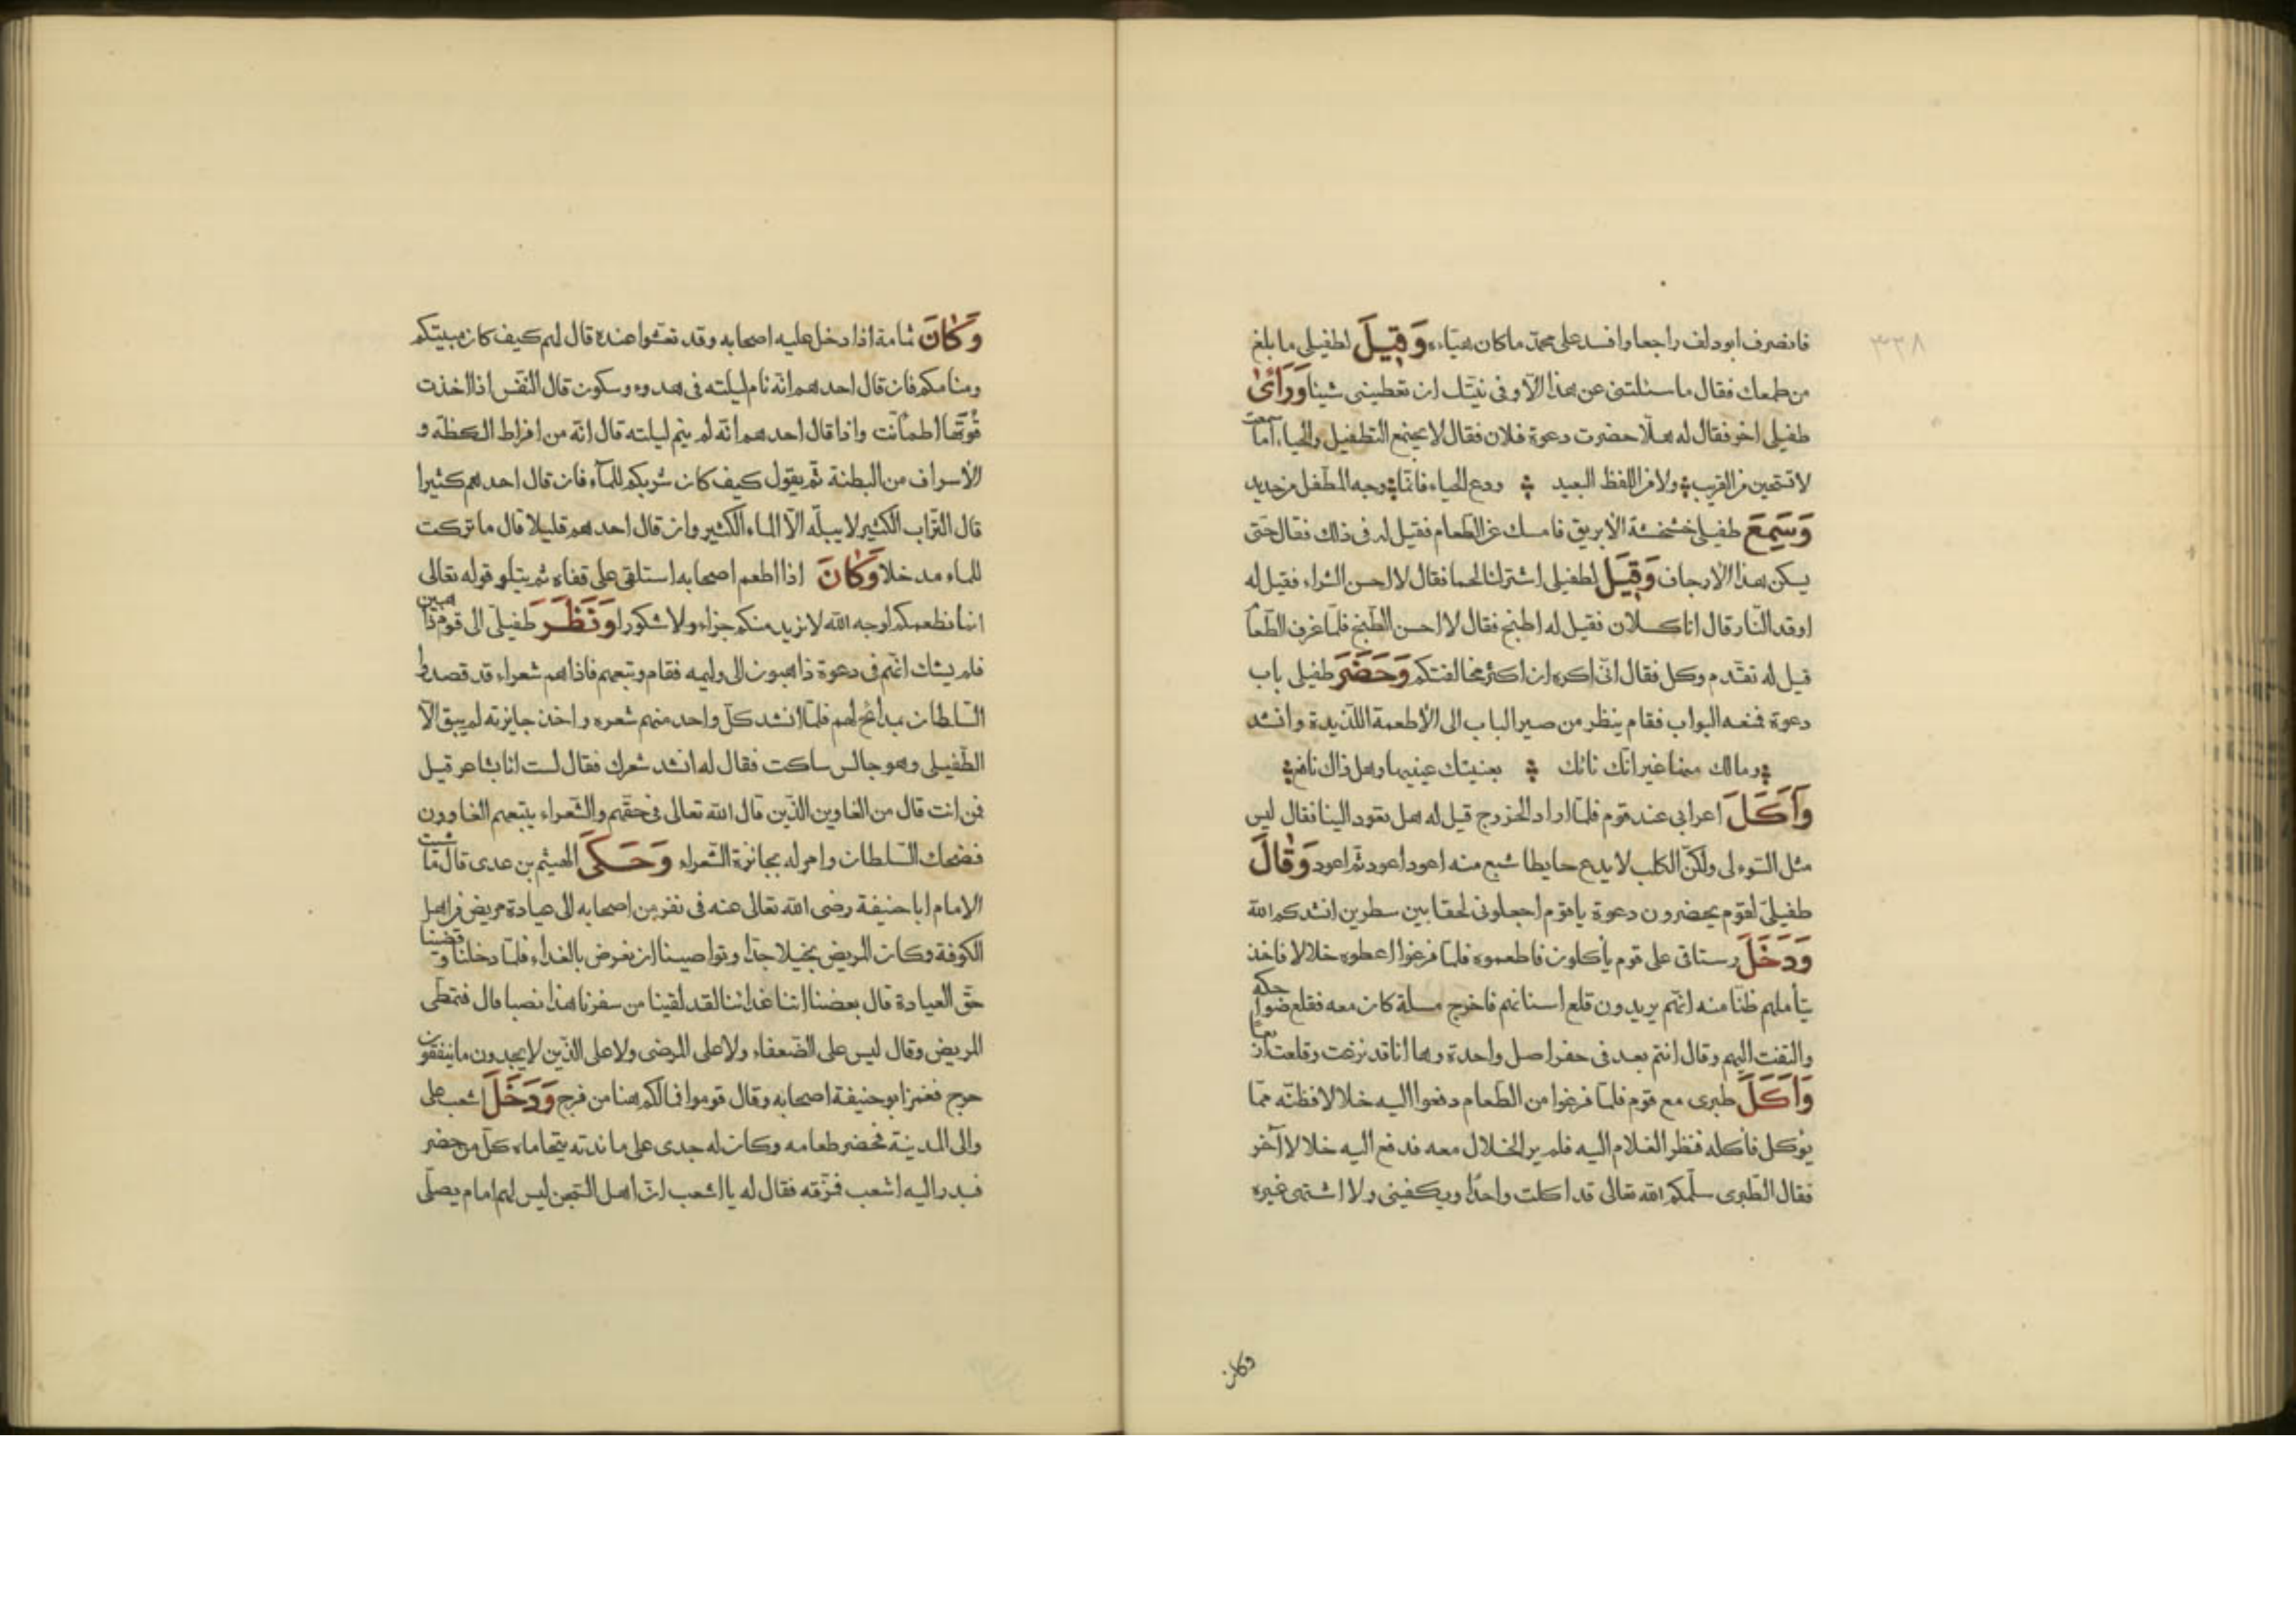 ٣٣٨
فانصرف ابو دلف راجعا وافسد على محمد ما كان هيّاءه وَقِيلَ لطفيلى ما بلغ
من طمعك فقال ما سئلتنى عن هذا الّا وفى نيّتك ان تعطينى شيئا وَرَأَىٰ
طفيلى اخر فقال له هلّا حضرت دعوة فلان فقال لا يجتمع التطفيل والحياء اما سمعت
لا تستحين من القريب ولا من اللفظ البعيد ودع الحياء فانّما وجه المطفّل من حديد
وَسَمِعَ طفيلى خشخشة الابريق فامسك عن الطعام فقيل له فى ذلك فقال حتى
يسكن هذا الارجاف وَقِيلَ لطفيلى اشتر لنا لحما فقال لا احسن الشراء فقيل له
اوقد النّار قال انا كسلان فقيل له اطبخ فقال لا احسن الطبخ فلمّا غرف الطّعام
قيل له تقدّم وكل فقال انّى اكره ان اكثر مخالفتكم وَحَضَرَ طفيلى باب
دعوة فمنعه البواب فقام ينظر من صير الباب الى الأطعمة اللّذيدة وانشد
وما لك منها غير انّك نائك بعينيك عينيها وهل ذاك نافع
وَأَكَلَ اعرابى عند قوم فلمّا اراد الخروج قيل له هل تعود الينا فقال ليس
مثل السّوء لى ولكنّ الكلب لا يدع حايطا شبع منه اعود اعود ثمّ اعود وَقَالَ
طفيلىّ لقوم يحضرون دعوة يا قوم اجعلونى لحقا بين سطرين انشدكم الله
وَدَخَلَ رستاقى على قوم يأكلون فاطعموه فلمّا فرغوا اعطوه خلالا فاخذ
يتأملهم ظنّا منه انّهم يريدون قلع اسنانهم فاخرج مسلة كان معه فقلع ضواحكه
والتفت اليهم وقال انتم بعد فى حفر اصل واحدة وها انا قد نزعت وقلعت اربعًا
وَأَكَلَ طبرى مع قوم فلمّا فرغوا من الطّعام دفعوا اليه خلالا فظنّه ممّا
يؤكل فأكله فنظر الغلام اليه فلم ير الخلال معه فدفع اليه خلالا آخر
فقال الطّبرى سلّمكم الله تعالى قد اكلت واحدًا ويكفينى ولا اشتهى غيره
وكان
وَكَانَ ثمامة اذا دخل عليه اصحابه وقد تعشّوا عنده قال لهم كيف كان مبيتكم
ومنامكم فان قال احدهم انّه نام ليلته فى هدوء وسكون قال النّفس اذا اخذت
قُوتَها اطمأنّت واذا قال احدهم انّه لم ينم ليلته قال انّه من افراط الكظّة و
الأسراف من البطنة ثمّ يقول كيف كان شربكم للماء فان قال احدهم كثيرا
قال التّراب الكثير لا يبلّه الّا الماء الكثير وان قال احدهم قليلا قال ما تركت
للماء مدخلا وَكَانَ اذا اطعم اصحابه استلقى على قفاه ثم يتلو قوله تعالى
انما نطعمكم لوجه الله لا نريد منكم جزاء ولا شكورا وَنَظَرَ طفيلىّ الى قوم ذاهبين
فلم يشك انّهم فى دعوة ذاهبون الى وليمه فقام وتبعهم فاذا هم شعراء قد قصدوا
السّلطان بمدائح لهم فلمّا انشد كلّ واحد منهم شعره واخذ جايزته لم يبق الّا
الطّفيلى وهو جالس ساكت فقال له انشد شعرك فقال لست انا بشاعر قيل
فمن انت قال من الغاوين الذّين قال الله تعالى فى حقّهم والشّعراء يتبعهم الغاوون
فضحك السّلطان وامر له بجائزة الشّعراء وَحَكَىٰ الهيثم بن عدى قال ماشيت
الامام ابا حنيفة رضى الله تعالى عنه فى نفر من اصحابه الى عيادة مريض من اهل
الكوفة وكان المريض بخيلا جدّا وتواصينا ان نعرض بالغداء فلمّا دخلنا وقضينا
حقّ العيادة قال بعضنا اتنا غدائنا لقد لقينا من سفرنا هذا نصبا قال فتمطّى
المريض وقال ليس على الضّعفاء ولا على المرضى ولا على الذّين لا يجدون ما ينفقون
حرج فغمز ابو حنيفة اصحابه وقال قوموا فما لكم هنا من فرج وَدَخَلَ اشعب على
والى المدينة فحضر طعامه وكان له جدى على مائدته يتحاماه كلّ من حضر
فبدر اليه اشعب فمزّقه فقال له يا اشعب انّ اهل السّجن ليس لهم امام يصلّى